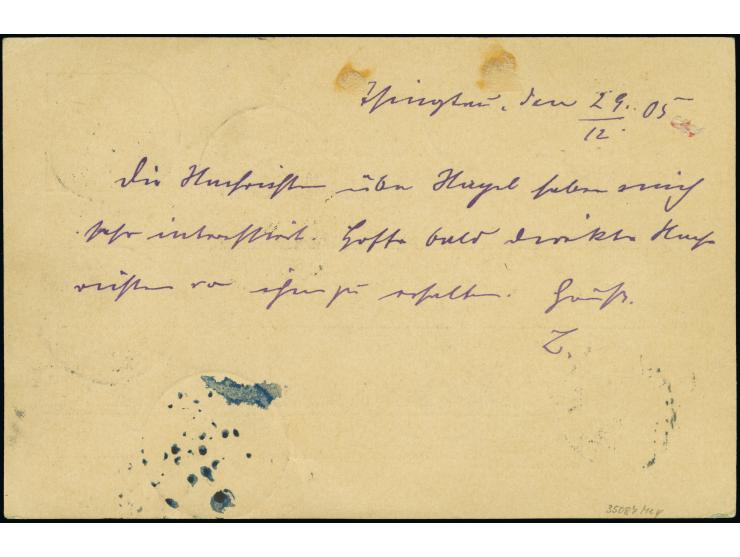 Tsingtau, den 29. 05
12.
Die Nachrichten über Nagel haben mich
sehr interessirt. Hoffe bald direkte Nach-
richten von ihm zu erhalten. Gruß.
Z.